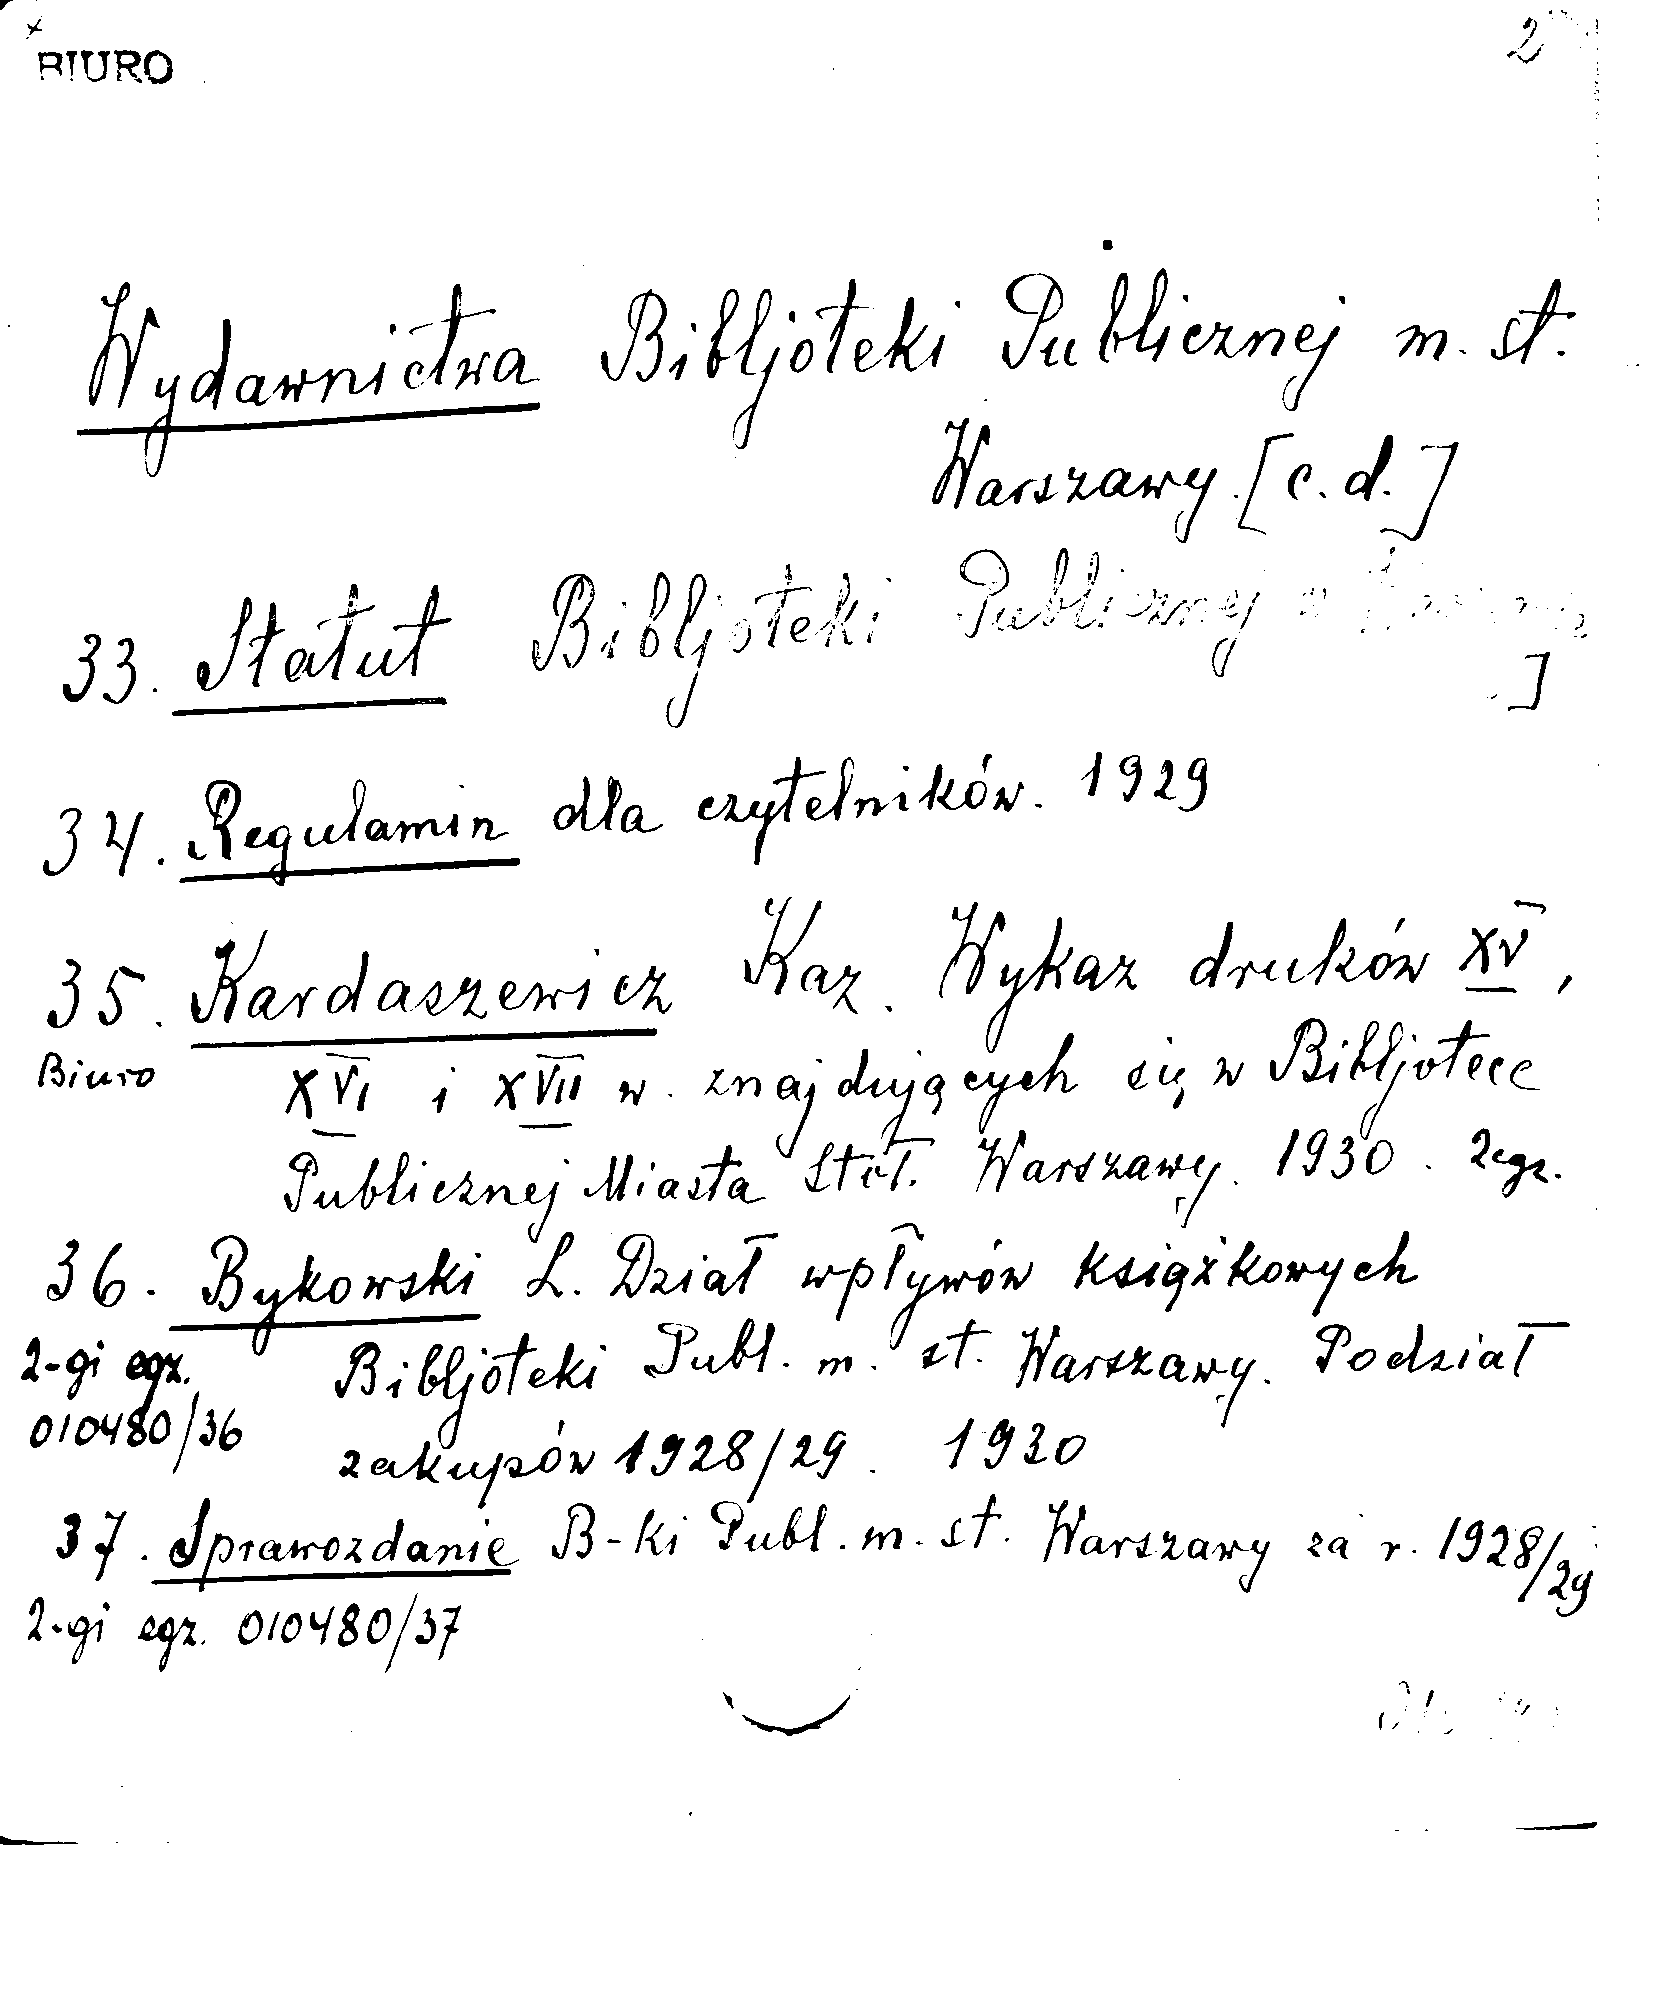 BIURO 2
Wydawnictwa Bibljoteki Publicznej m. st.
Warszawy. [c.d.]
33. Statut Bibljoteki Publicznej w
]
34. Regulamin dla czytelników. 1929
35. Kardaszewicz Kaz. Wykaz druków XV,
Biuro XVI i XVII w. znajdujących się w Bibljotece
Publicznej Miasta Stoł. Warszawy. 1930. 2egz.
36. Bykowski L. Dział wpływów książkowych
2-gi egz. Bibljoteki Publ. m. st. Warszawy. Podział
010480/36 zakupów 1928/29. 1930
37. Sprawozdanie B-ki Publ. m. st. Warszawy za r. 1928/29
2-gi egz. 010480/37